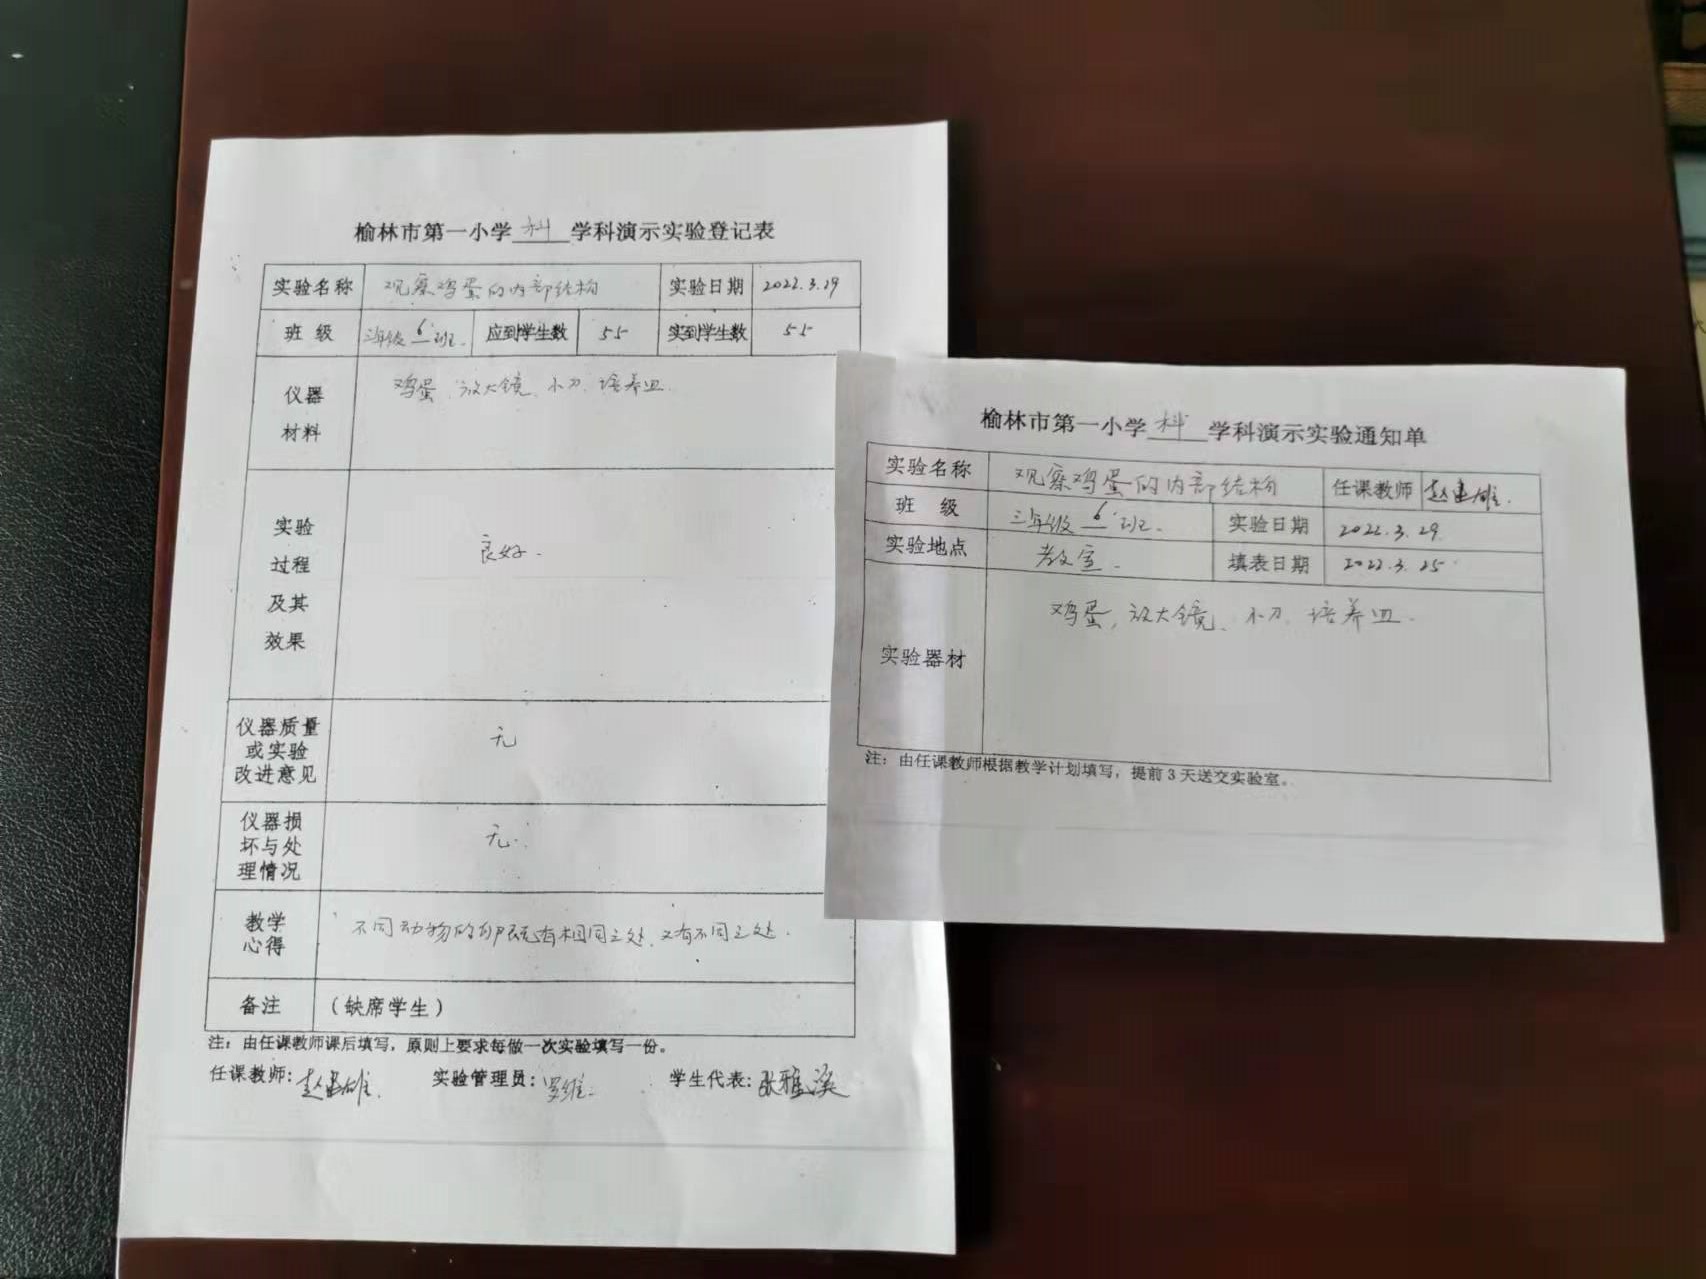 榆林市第一小学 科 学科演示实验登记表
实验名称 观察鸡蛋的内部结构 实验日期 2022.3.29
班 级 三年级 6 班. 应到学生数 55 实到学生数 55
仪器 鸡蛋、放大镜、小刀、培养皿.
材料
实验
过程 良好.
及其
效果
仪器质量
或实验 无
改进意见
仪器损
坏与处 无.
理情况
教学 不同动物的卵既有相同之处、又有不同之处.
心得
备注 (缺席学生)
注：由任课教师课后填写，原则上要求每做一次实验填写一份。
任课教师: 赵建雄. 实验管理员: 罗维. 学生代表: 张雅溪
榆林市第一小学 科 学科演示实验通知单
实验名称 观察鸡蛋的内部结构 任课教师 赵建雄.
班 级 三年级 6 班. 实验日期 2022.3.29.
实验地点 教室. 填表日期 2022.3.25
实验器材 鸡蛋, 放大镜、小刀、培养皿.
注：由任课教师根据教学计划填写，提前3天送交实验室。